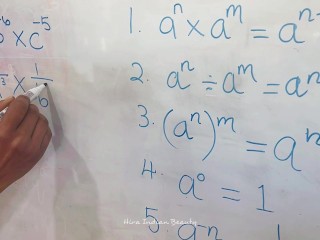 b⁻⁶ × c⁻⁵
× 1/b
1. aⁿ × aᵐ = aⁿ⁻
2. aⁿ ÷ aᵐ = aⁿ
3. (aⁿ)ᵐ = aⁿ
4. a⁰ = 1
5. a⁻ⁿ 1
Hira Indian Beauty